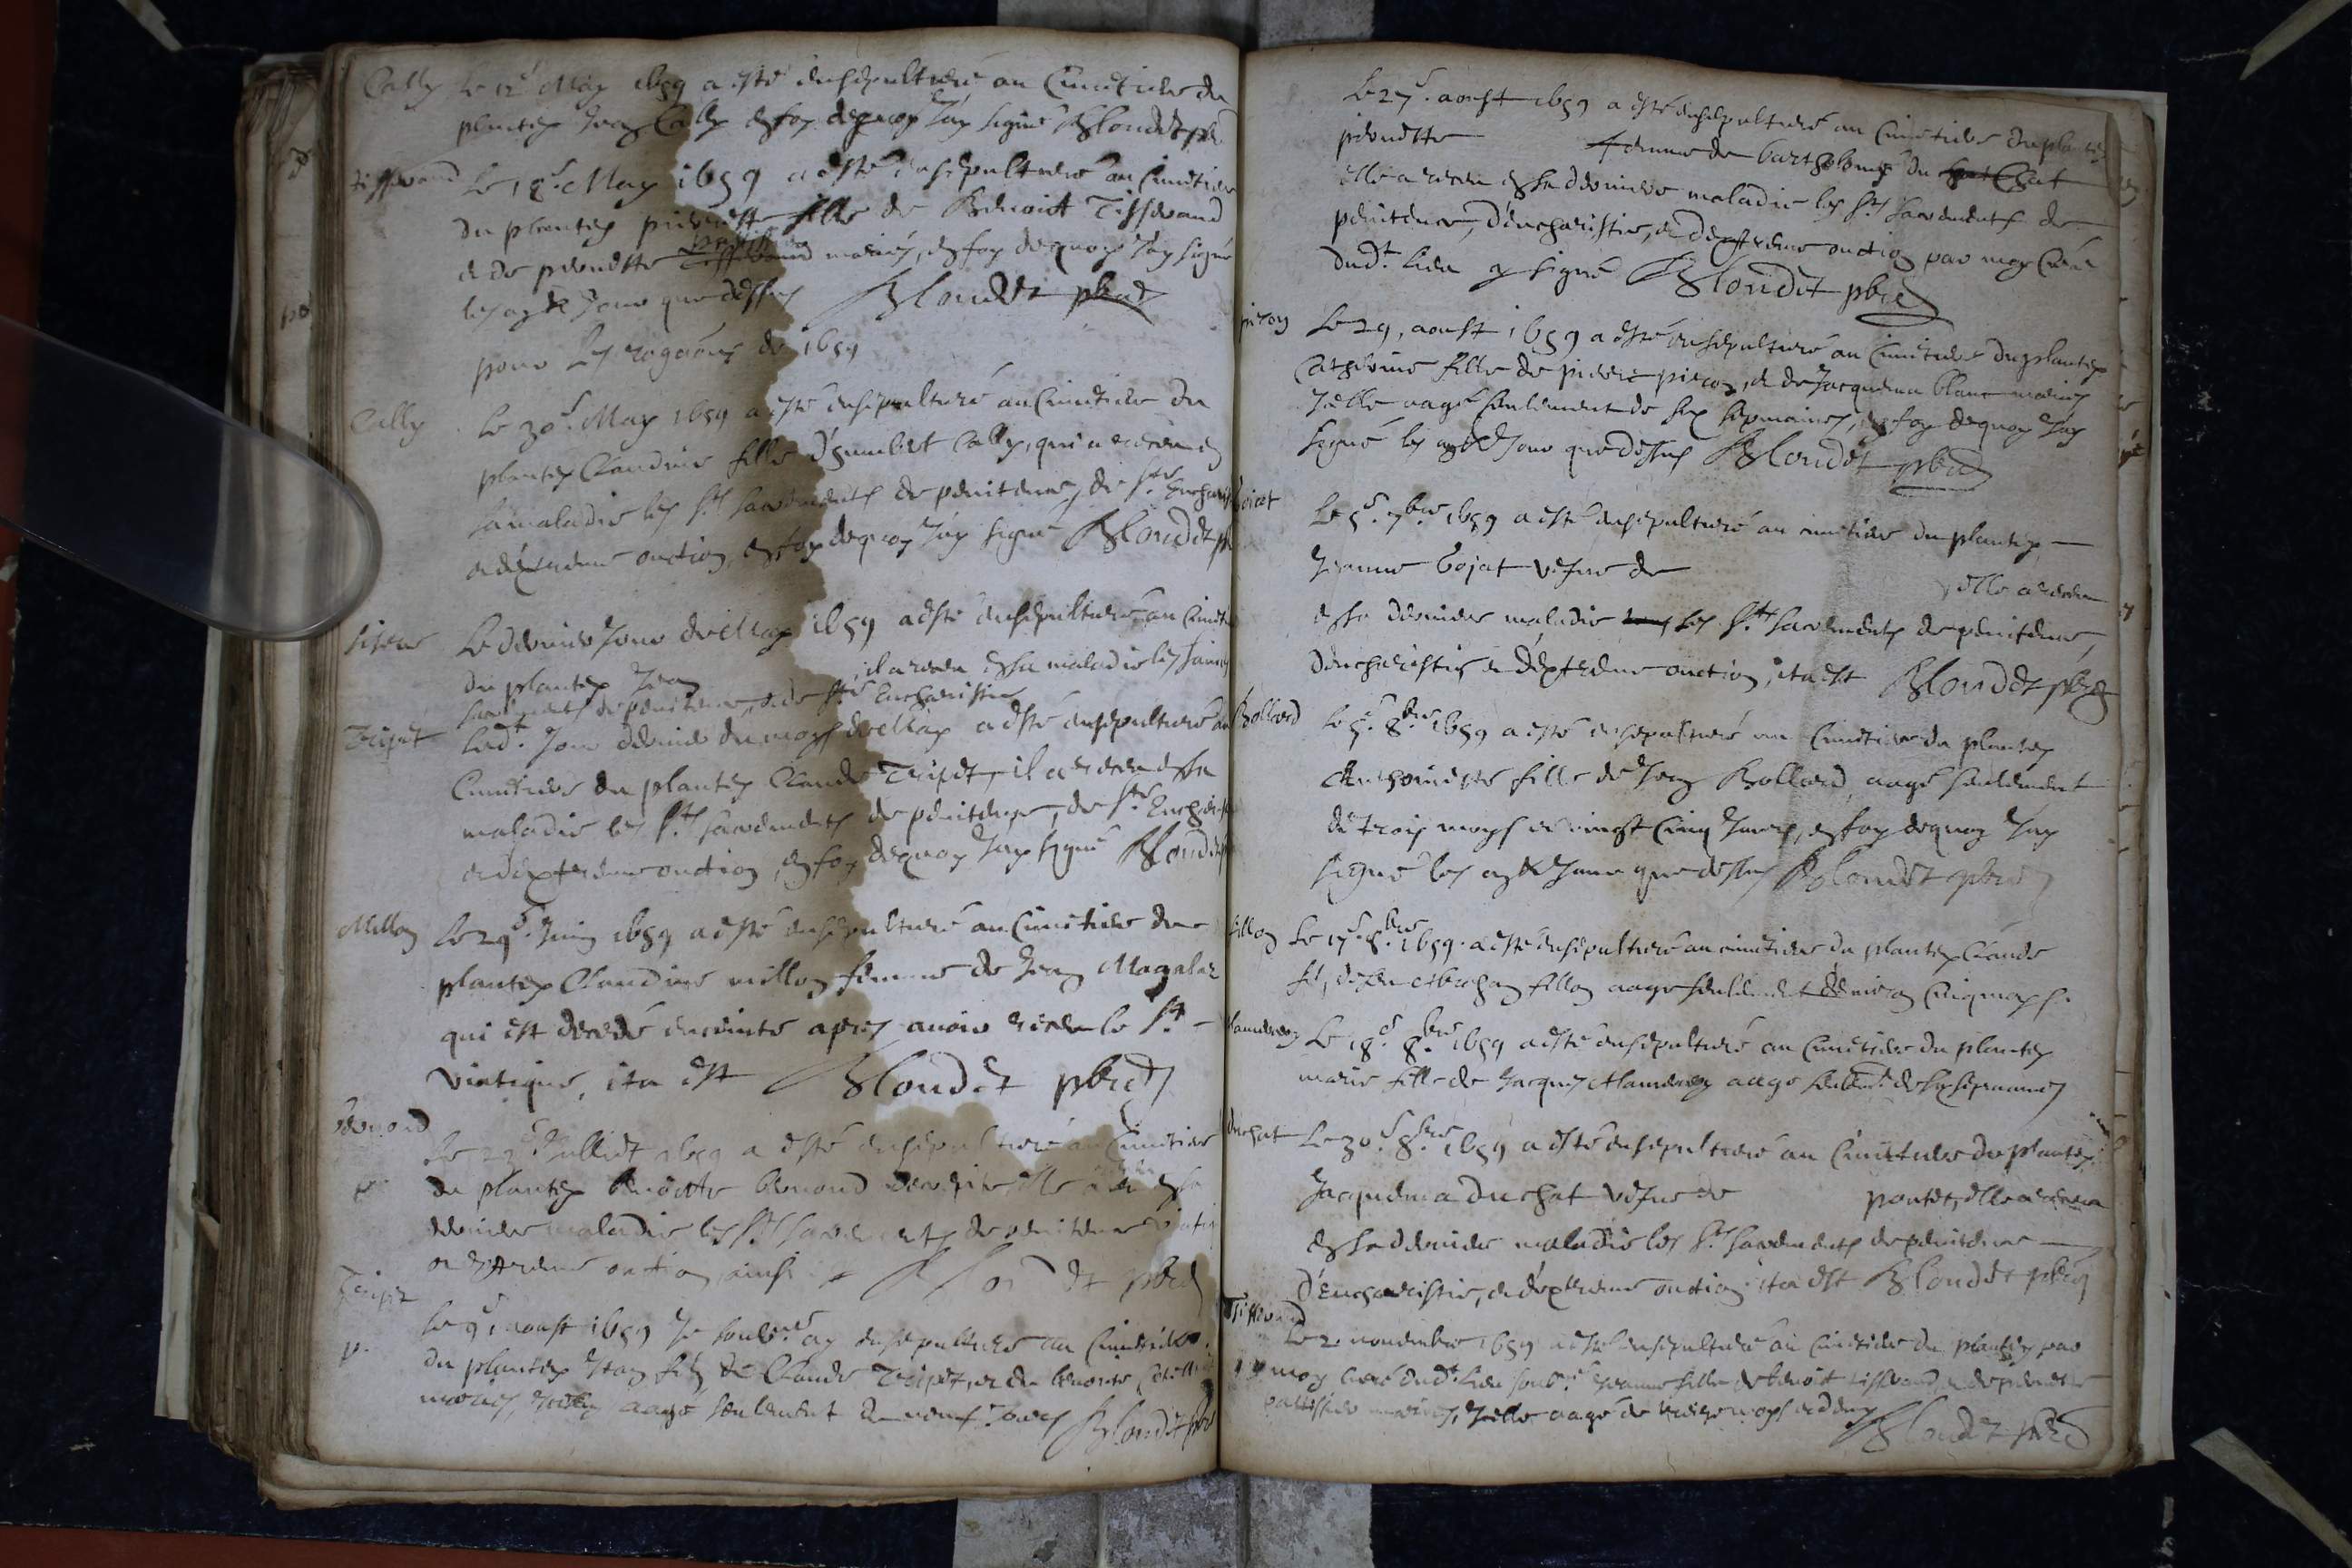 Cally Le 12e May 1659 a esté ensepulturé au Cimetiere du
plantey Jean Cally en foy dequoy J'ay signé Blondet pbre
tisserand Le 18e May 1659 a esté ensepulturé au Cimetiere
du plantey pierrette fille de Benoict Tisserand
et de pernette mariés, en foy dequoy J'ay signé
les an et Jour que dessus Blondet pbre
pour les rogaõns de 1659
Cally Le 30e May 1659 a esté ensepulturé au Cimetiere du
plantey Claudine fille d'humbert Cally, qui a receu en
sa maladie les Sts sacrements de penitence, de Ste Eucharistie
et d'extreme onction, en foy dequoy J'ay signé Blondet
Le dernier Jour de May 1659 a esté ensepulturé au Cimetiere
du plantey Jean il a receu en sa maladie les saincts
sacrements de penitence, et de Ste Eucharistie
Tripet Ledt. Jour dernier du moys de May a esté ensepulturé au
Cimetiere du plantey Claude Tripet, il a receu en sa
maladie les Sts sacrements de penitence, de Ste Eucharistie
et d'extreme onction, en foy dequoy J'ay signé Blondet
Millon Le 29e Juin 1659 a esté ensepulturé au Cimetiere du
plantey Claudine millon femme de Jean Magalar
qui est decedé enceinte apres avoir receu le St
viatique, ita est Blondet pbre
bernond
Le 23e Juillet 1659 a esté ensepulturé au Cimetiere
du plantey benoiste bernond elle a receu en sa
derniere maladie les Sts sacrements de penitence
et extreme onction, ainsi est Blondet pbre
Tripet
Le 9e, aoust 1659 Je soubsné ay ensepulturé au Cimetiere
p. du plantey Jean fils de Claude Tripet, et de benoiste
mariés, aagé seulement de neuf Jours Blondet pbre
Le 27e. aoust 1659 a esté ensepulturé au Cimetiere du plantey
pernette femme de bartholomé du Chat
elle a receu en sa derniere maladie les Sts sacrements de
penitence, d'eucharistie, et d'extreme onction par moy Curé
dudt. lieu sy signé Blondet pbre
piron Le 29, aoust 1659 a esté ensepulturé au Cimetiere du plantey
Catherine fille de pierre piron, et de Jacquema blanc mariés
Jcelle aagé seulement de six sepmaines, en foy dequoy J'ay
signé les an et Jour que dessus Blondet pbre
bojat Le 5e. 7bre 1659 a esté ensepulturé au cimetiere du plantey
Jeanne bojat vefve de elle a receu
en sa derniere maladie les Sts sacrements de penitence,
d'eucharistie et d'extreme onction, ita est Blondet pbre
Bollard Le 5e 8bre 1659 a esté ensepulturé au Cimetiere du plantey
Anthoinette fille de Jean Bollard, aagé seulement
de trois moys et vingt Cinq Jours, en foy dequoy J'ay
signé les an et Jour que dessus Blondet pbre
fillon Le 17e. 8bre 1659. a esté ensepulturé au cimetiere du plantey Claude
fils, de feu Abraham fillon aagé seulement d'environ Cinq moys.
Le 18e 8bre 1659 a esté ensepulturé au Cimetiere du plantey
marie fille de Jacques aagé seulemt. de six sepmaines
duchat Le 30e 8bre 1659 a esté ensepulturé au Cimetiere du plantey
Jacquema duchat vefve de pontet, elle a receu
en sa derniere maladie les Sts sacrements de penitence
d'Eucharistie, et d'extreme onction ita est Blondet pbre
Tisserand
Le 2 novembre 1659 a esté ensepulturé au Cimetiere du plantey par
moy Curé dudt. lieu soubné Jeanne fille de benoit tisserand et de pernette
mariés, Jcelle aagé de treize moys et demy
Blondet pbre